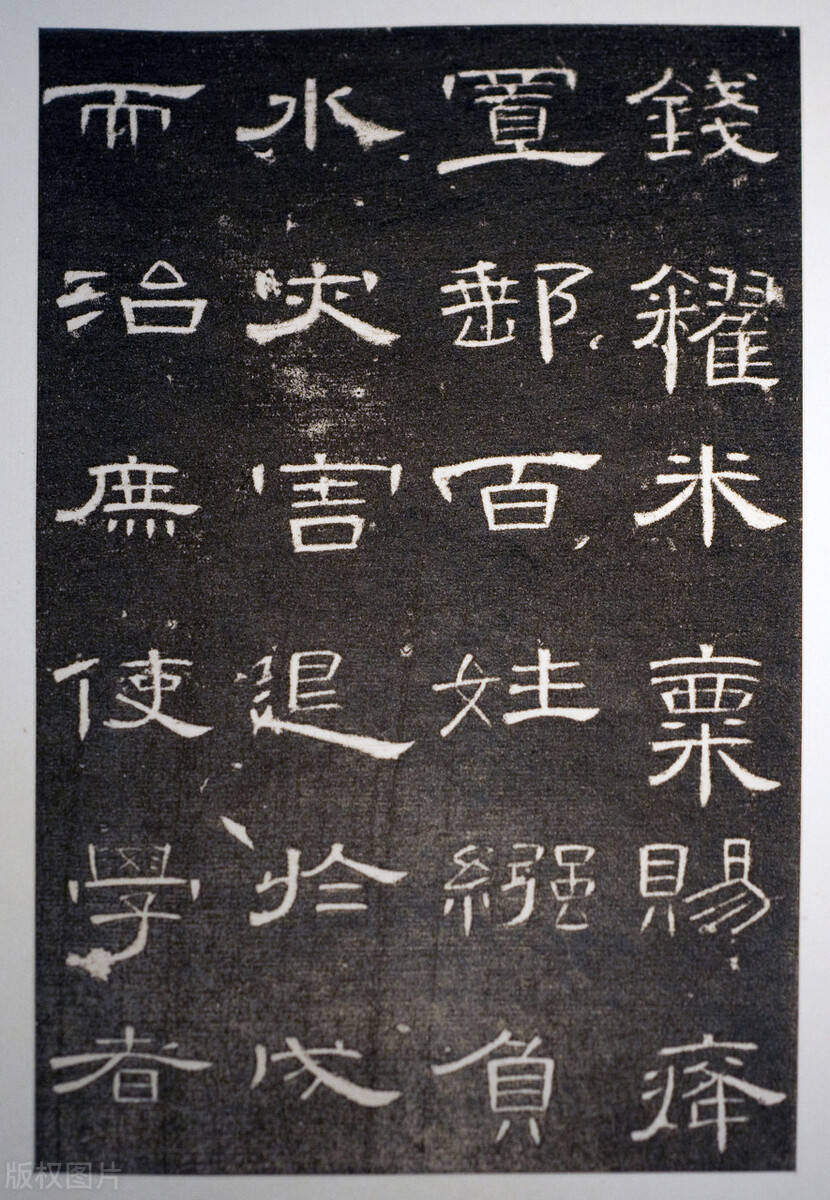 錢糴米粟賜癃
置郵百姓繈負
水災害退於戌
而治庶使學者
版权图片